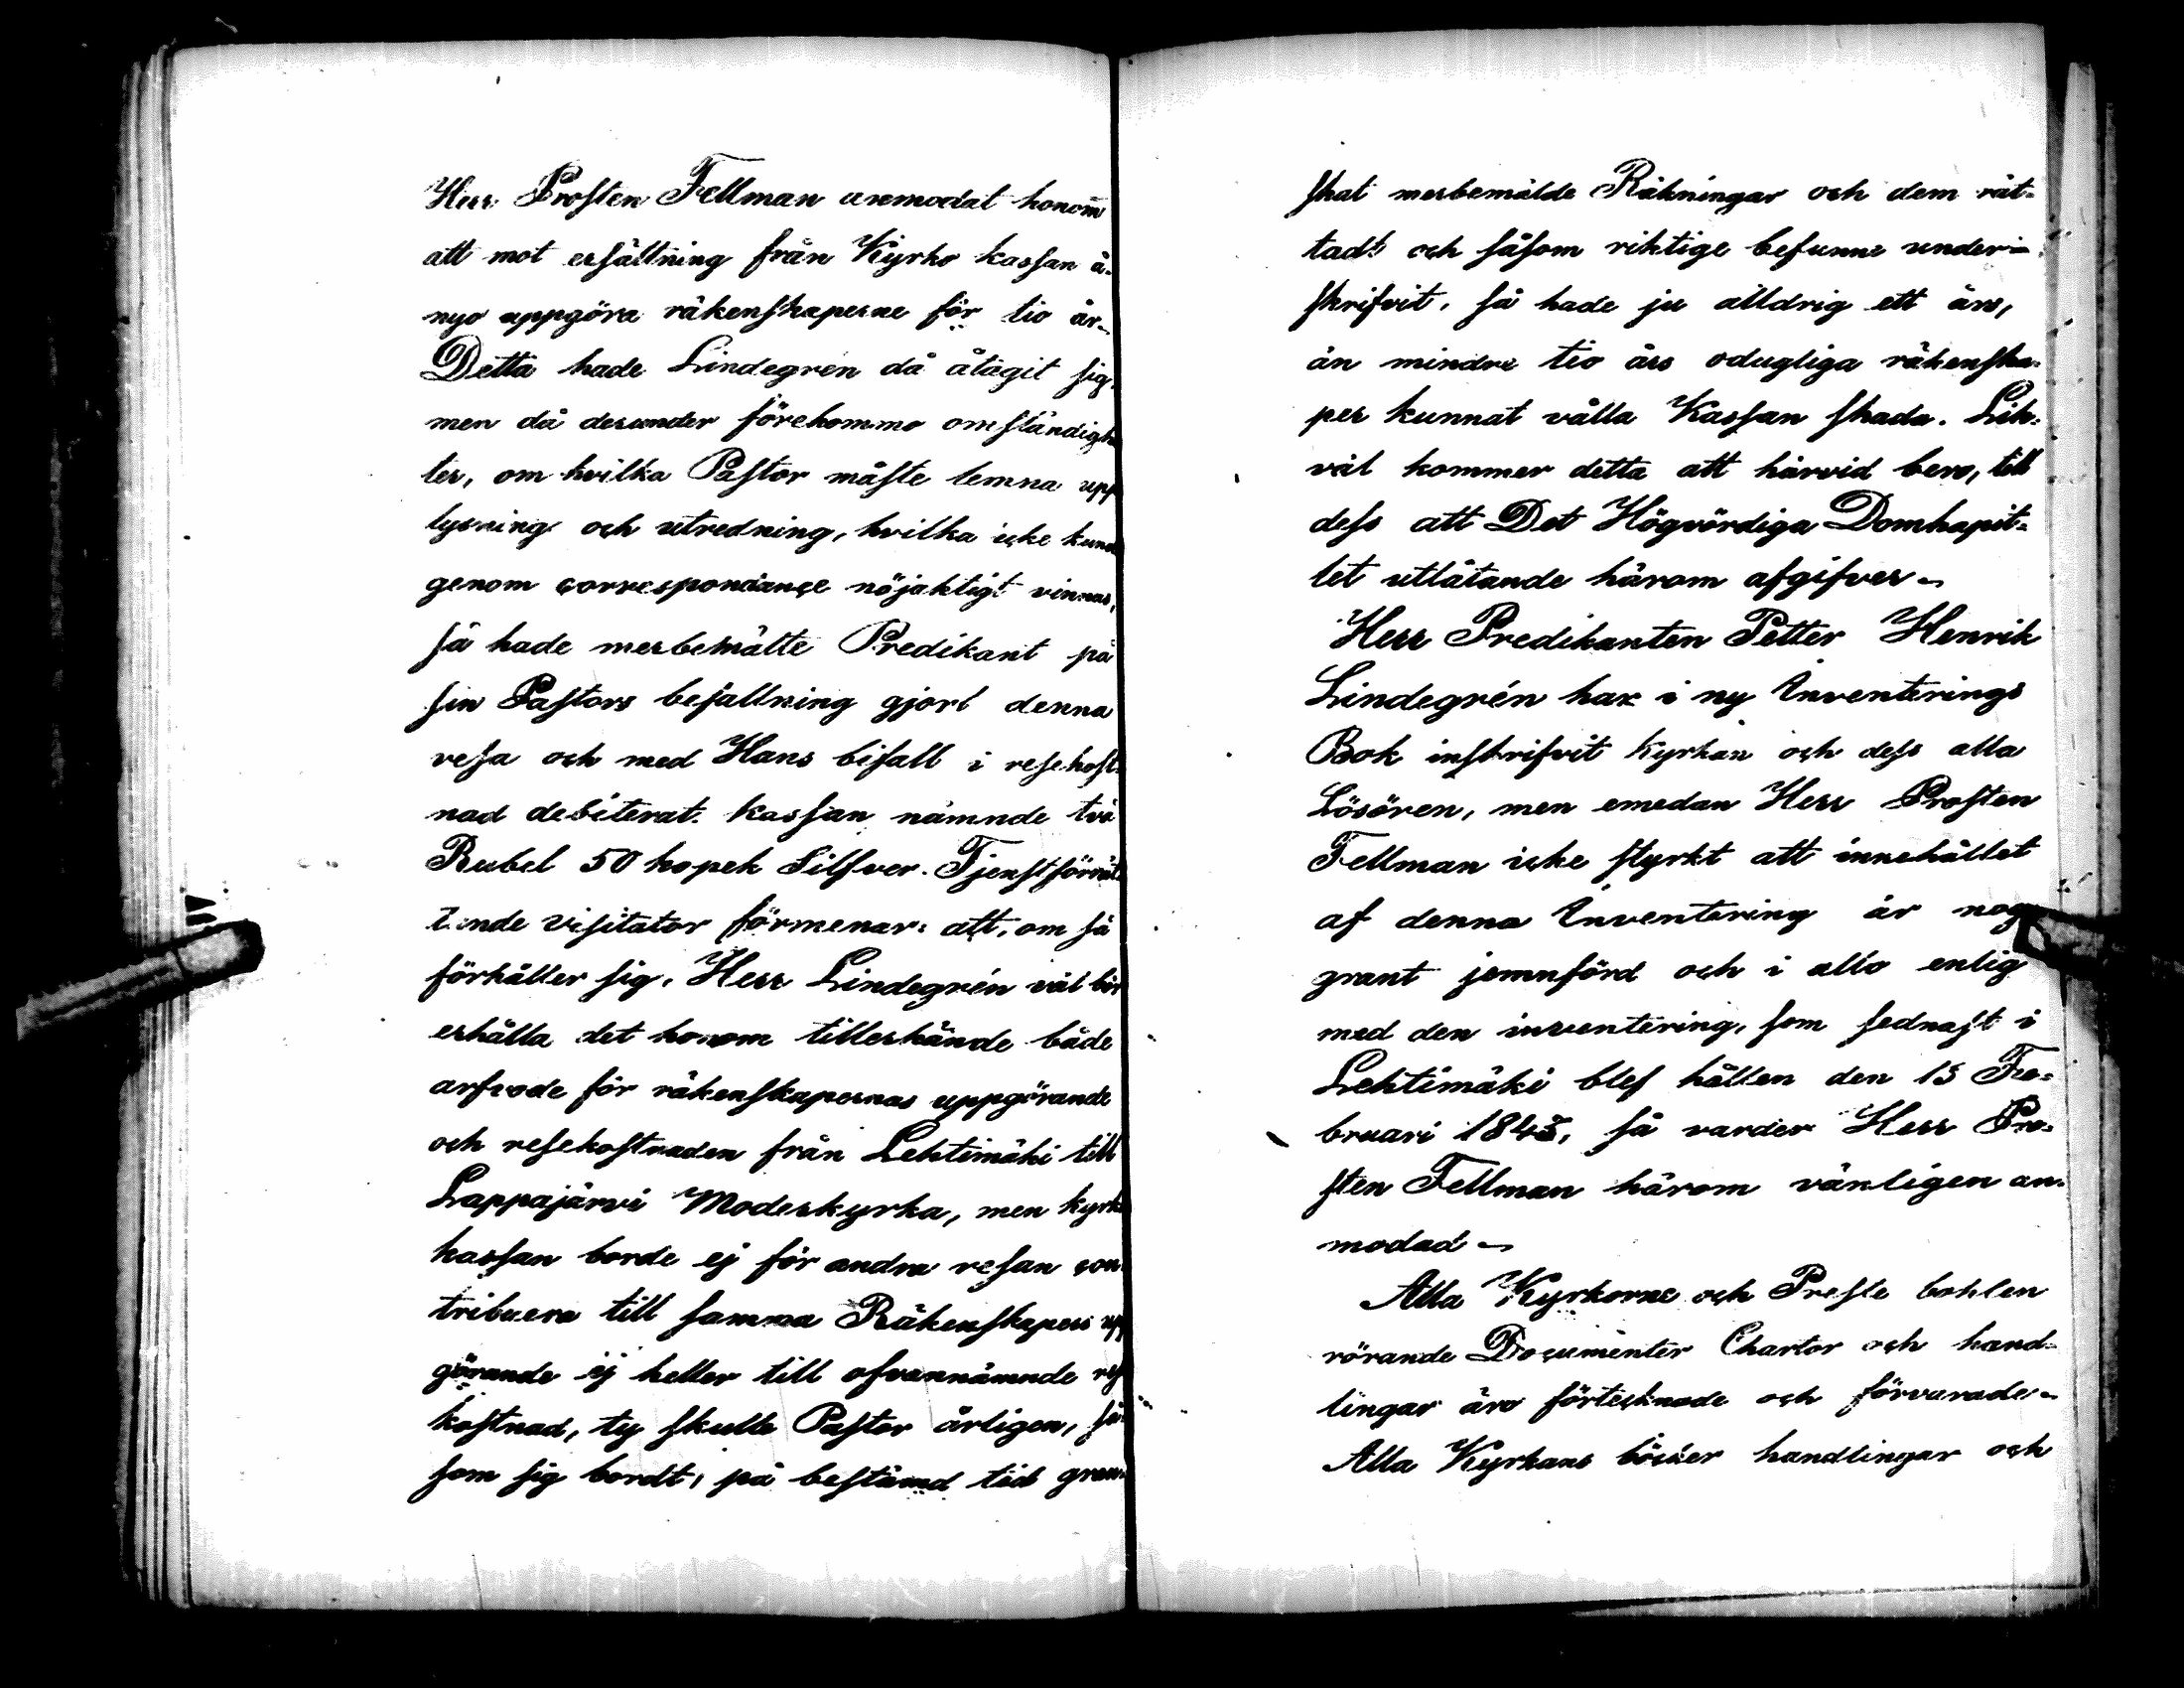 Herr Prosten Fellman anmodat honom
att mot ersättning från Kyrko kassan å-
nyo uppgöra räkenskaperne för tio år.
Detta hade Lindegren då åtagit sig,
men då derunder förekommo omständighe
ter, om hvilka Pastor måste lemna upp
lysning och utredning, hvilka icke kunde
genom correspondance nöjaktigt vinnas,
så hade merbemälte Predikant på
sin Pastors befallning gjort denna
resa och med Hans bifall i resekost-
nad debiterat kassan nämnde två
Rubel 50 kopek Silfver. Tjenstförrät
tande visitator förmenar: att, om så
förhåller sig, Herr Lindegrén väl bör
erhålla det honom tillerkände både
arfvode för räkenskapernas uppgörande
och resekostnaden från Lehtimäki till
Lappajärvi Moderkyrka, men kyrko
kassan borde ej för andra resan con-
tribuera till samma Räkenskapers upp
görande ej heller till ofvannämnde rese
kostnad, ty skulle Pastor årligen, så-
som sig bordt, på bestämd tid gran-
skat merbemälde Räkningar och dem rät-
tadt och såsom riktige befunne under-
skrifvit, så hade ju alldrig ett års,
än mindre tio års odugliga räkenska-
per kunnat vålla Kassan skada. Lik-
väl kommer detta att härvid bero, till
dess att Det Högvördiga Domkapit-
let utlåtande härom afgifver.
Herr Predikanten Petter Henrik
Lindegrén har i ny Inventerings
Bok inskrifvit kyrkan och dess alla
Lösören, men emedan Herr Prosten
Fellman icke styrkt att innehållet
af denna Inventering är nog
grant jemnförd och i allo enlig
med den inventering, som sednast i
Lehtimäki blef hållen den 15 Fe-
bruari, så varder Herr Pro-
sten Fellman härom vänligen an-
modad
Alla Kyrkorne och Preste bohlen
rörande Documenter Chartor och hand-
lingar äro förtecknade och förvarade.
Alla Kyrkans böcker handlingar och